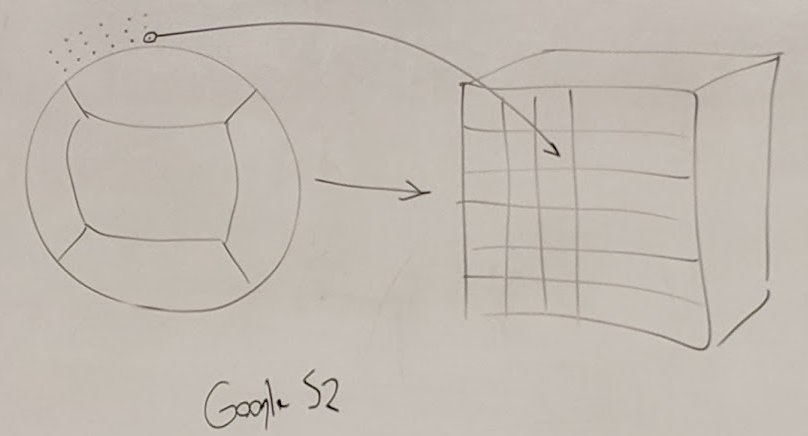 Google S2